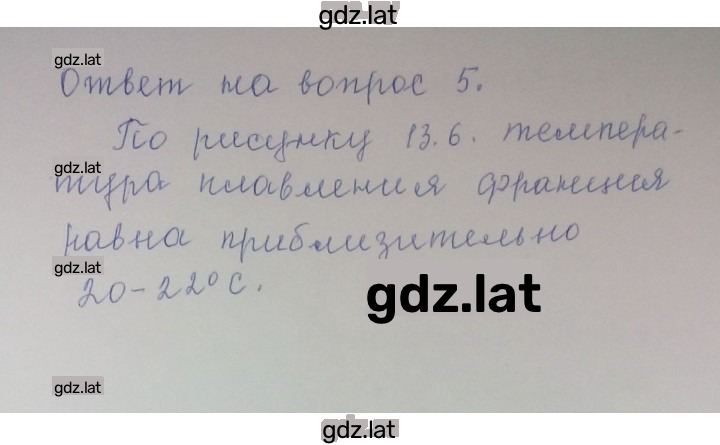 gdz.lat
gdz.lat
Ответ на вопрос 5.
По рисунку 13.6. темпера-
gdz.lat
тура плавления франция
равна приблизительно
gdz.lat
20-22° С.
gdz.lat
gdz.lat
gdz.lat